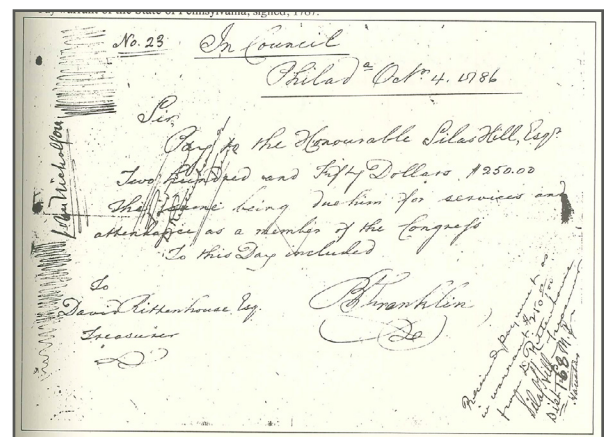 Pay warrant of the State of Pennsylvania, signed, 1787.
No. 23
In Council
Philada Octr 4. 1786
Sir,
Pay to the Honourable Silas Hill, Esqr
Two Hundred and Fifty Dollars $250.00
the same being due him for services and
attendance as a member of the Congress
To this Day included
To
David Rittenhouse Esq.
Treasurer
B Franklin
Jno Nicholson
Received payment as
in warrant $250.00
from D Rittenhouse
Silas Hill Treasurer
Sept